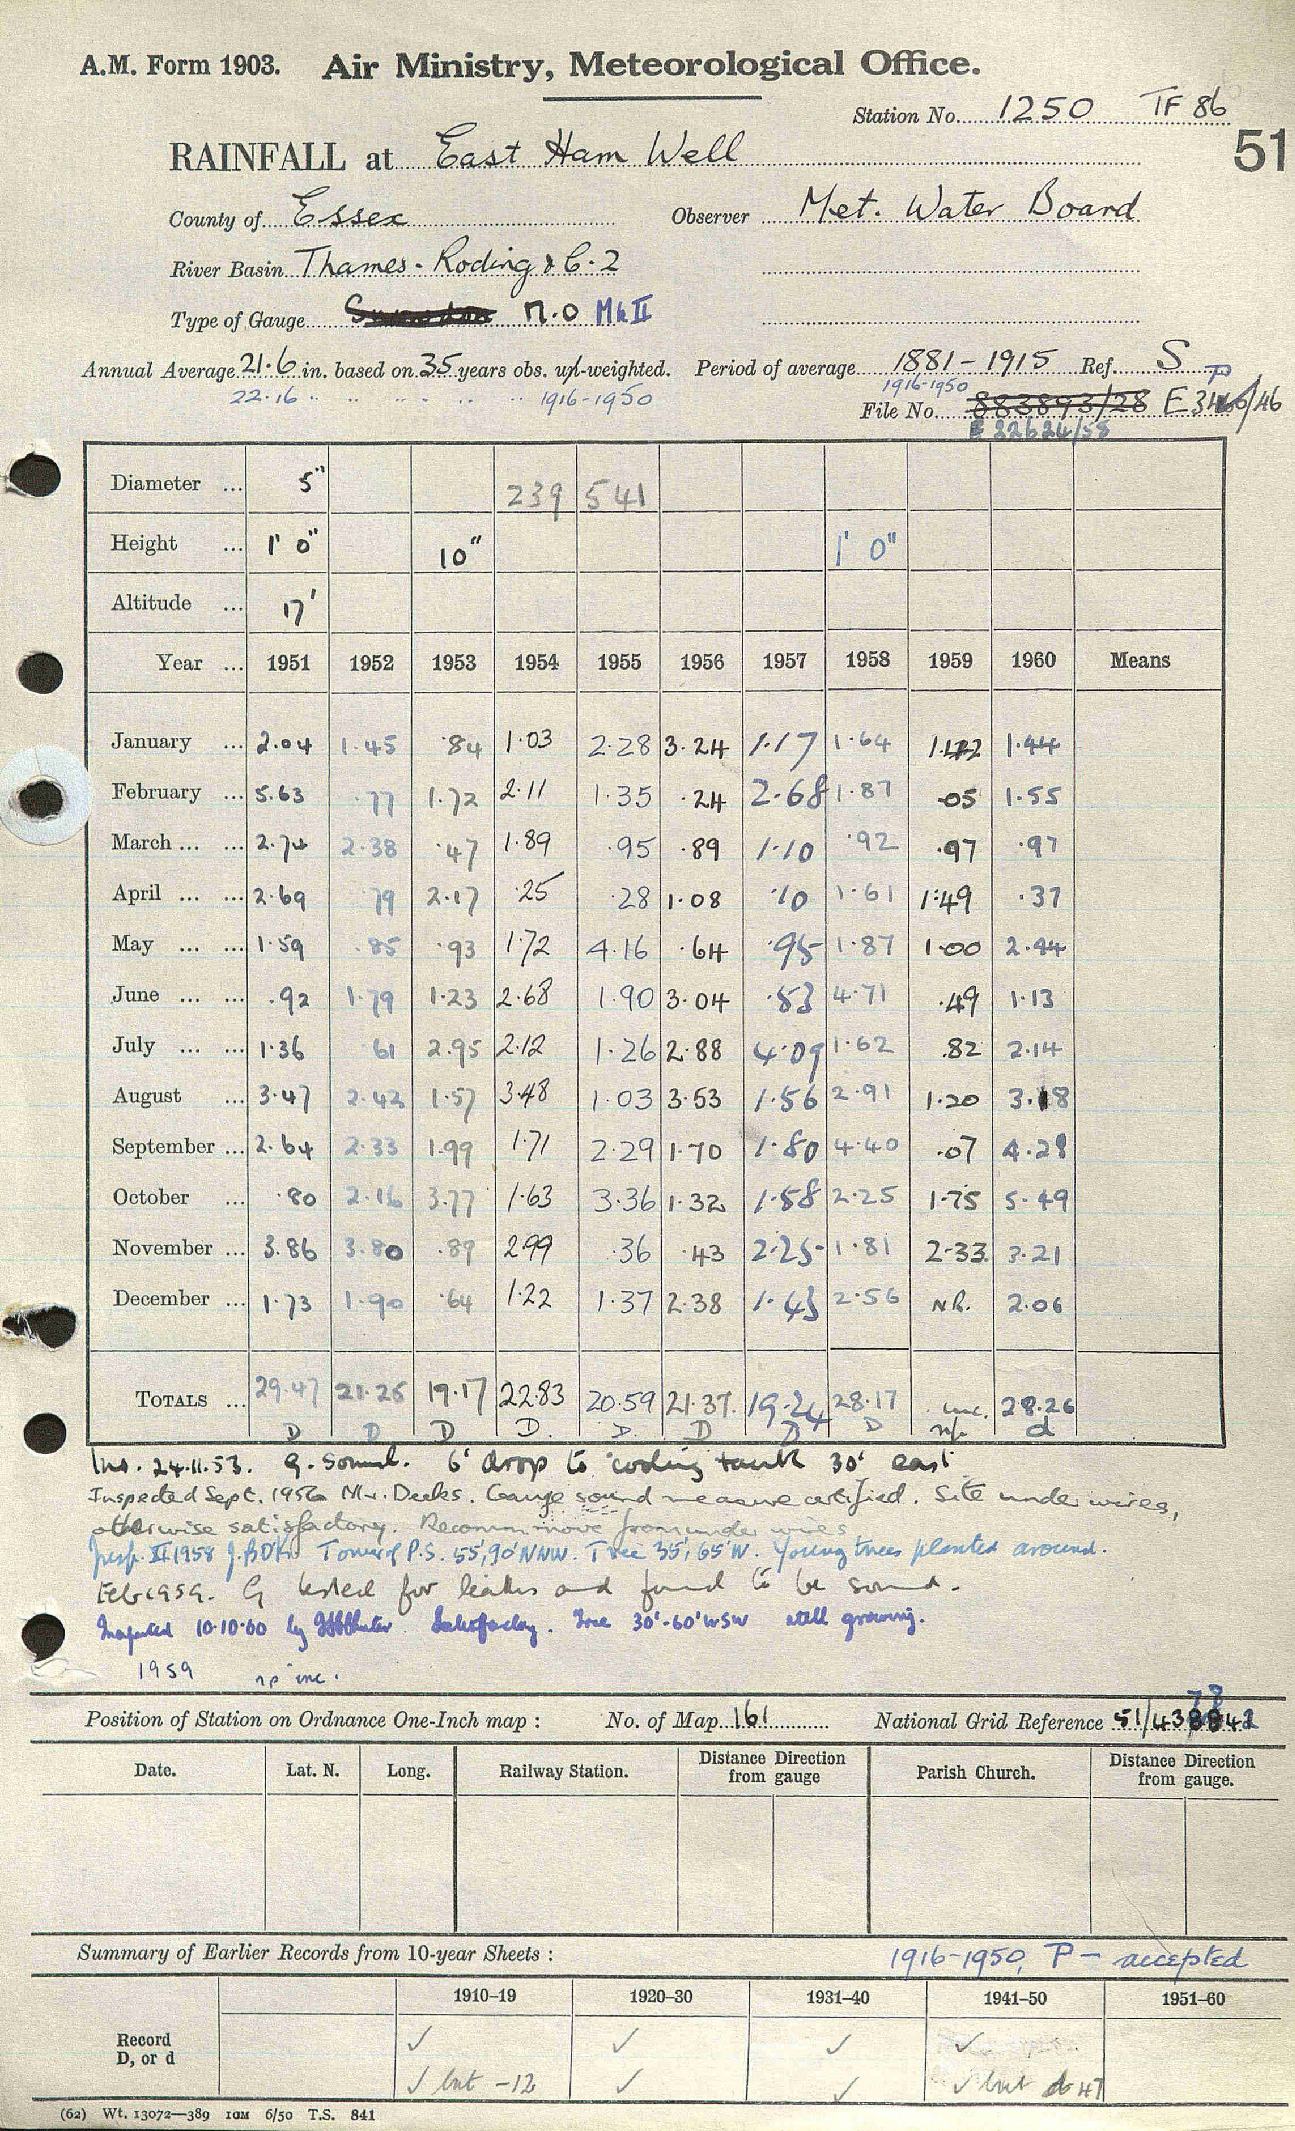 A.M. Form 1903. Air Ministry, Meteorological Office.
Station No. 1250 TF 86
51
RAINFALL at East Ham Well
County of Essex Observer Met. Water Board
River Basin Thames - Roding & C-2
Type of Gauge M.O Mk II
Annual Average 21.6 in. based on 35 years obs. un-weighted. Period of average 1881-1915 Ref. S
22.16 " " " " " 1916-1950 1916-1950 P
File No. 883893/28 E 3466/46
E 22624/58
Diameter ... 5" 239 541
Height ... 1' 0" 10" 1' 0"
Altitude ... 17'
Year ... 1951 1952 1953 1954 1955 1956 1957 1958 1959 1960 Means
January ... 2.04 1.45 .84 1.03 2.28 3.24 1.17 1.64 1.44
February ... 5.63 .77 1.72 2.11 1.35 .24 2.68 1.87 .05 1.55
March ... ... 2.74 2.38 .47 1.89 .95 .89 1.10 .92 .97 .97
April ... ... 2.69 .79 2.17 .25 .28 1.08 .10 1.61 1.49 .37
May ... ... 1.59 .85 .93 1.72 4.16 .64 .95 1.87 1.00 2.44
June ... ... .92 1.79 1.23 2.68 1.90 3.04 .53 4.71 .49 1.13
July ... ... 1.36 .61 2.95 2.12 1.26 2.88 4.09 1.62 .82 2.14
August ... 3.47 2.43 1.57 3.48 1.03 3.53 1.56 2.91 1.20 3.18
September ... 2.64 2.33 1.99 1.71 2.29 1.70 1.80 4.40 .07 4.28
October ... .80 2.16 3.77 1.63 3.36 1.32 1.58 2.25 1.75 5.49
November ... 3.86 3.80 .89 2.99 .36 .43 2.25 1.81 2.33 3.21
December ... 1.73 1.90 .64 1.22 1.37 2.38 1.43 2.56 N.R. 2.06
TOTALS ... 29.47 21.26 19.17 22.83 20.59 21.37 19.24 28.17 inc. 28.26
D D D D. D. D D D np d
Ins. 24.11.53. G. sound. 6' drop to cooling tank 30' east
Inspected Sept. 1956 Mr. Deeks. Gauge sound measure certified. Site under wires,
otherwise satisfactory. Recomm move from under wires
Insp. XI 1958 Tower of P.S. 55', 90' NNW. Tree 35', 65' W. Young trees planted around.
Feb 1959. G tested for leaks and found to be sound.
Inspected 10.10.60 by Satisfactory. Tree 30'-60' WSW still growing.
1959 np inc.
Position of Station on Ordnance One-Inch map : No. of Map 161 National Grid Reference 51/43
Date. Lat. N. Long. Railway Station. Distance Direction from gauge Parish Church. Distance Direction from gauge.
Summary of Earlier Records from 10-year Sheets : 1916-1950, P - accepted
1910-19 1920-30 1931-40 1941-50 1951-60
Record ✓ ✓ ✓ ✓
D, or d ✓ but -12 ✓ ✓ ✓ but d 47
(62) Wt. 13072—389 10M 6/50 T.S. 841